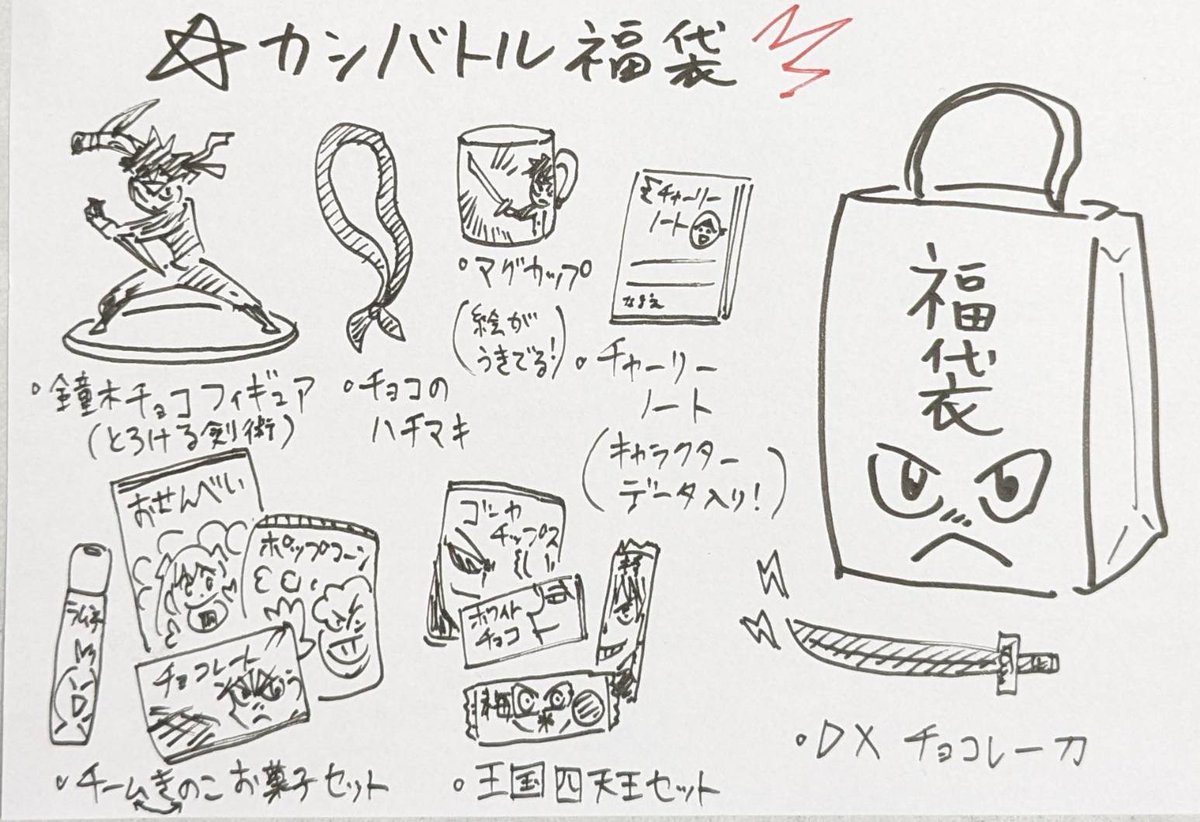 ☆カシバトル福袋
福袋
チャーリー
ノート
なまえ
・マグカップ
(絵が
うきでる!)
・鐘木チョコフィギュア
(とろける剣術)
・チョコの
ハチマキ
・チャーリー
ノート
(キャラクター
データ入り!)
おせんべい
ポップコーン
ラムネ
チョコレート
チップス
ホワイト
チョコ
梅
・チームきのこお菓子セット
・王国四天王セット
・DXチョコレー刀